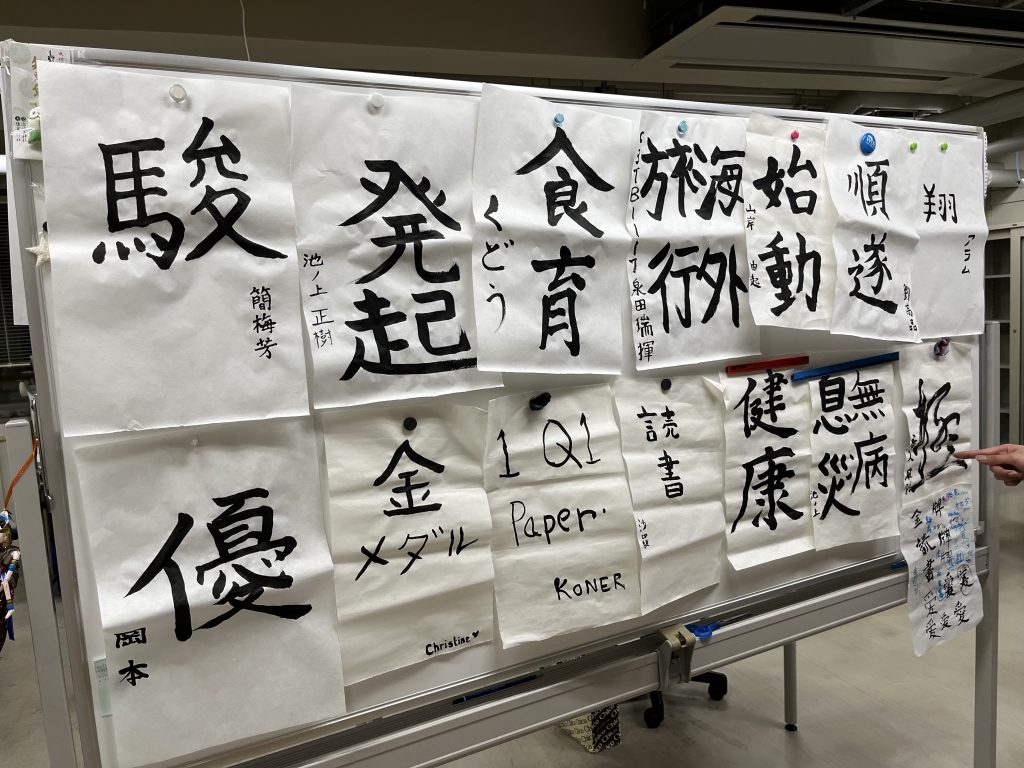 駿
簡梅芳
発起
池ノ上 正樹
食育
くどう
海外
旅行
泉田瑞揮
始動
山岸 由起
順遂
翔
優
岡本
金
メダル
Christine
1 Q1
Paper.
KONER
読書
健康
無病
息災
池上
極
愛
愛 愛 愛